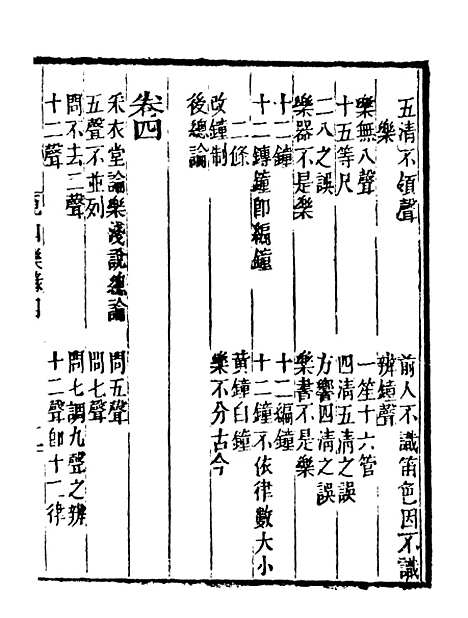 五清不領聲
前人不識笛色因不識
樂
辨鐘聲
樂無八聲
一笙十六管
十五等尺
四清五清之誤
二八之誤
方響四清之誤
樂器不是樂
樂書不是樂
十二鐘
十二編鐘
十二鎛鐘即編鐘
十二鐘不依律數大小
二條
黃鐘白鐘
改鐘制
樂不分古今
後總論
卷四
采衣堂論樂淺說總論
問五聲
五聲不並列
問七聲
問不去二聲
問七調九聲之辨
十二聲
十二聲即十二律